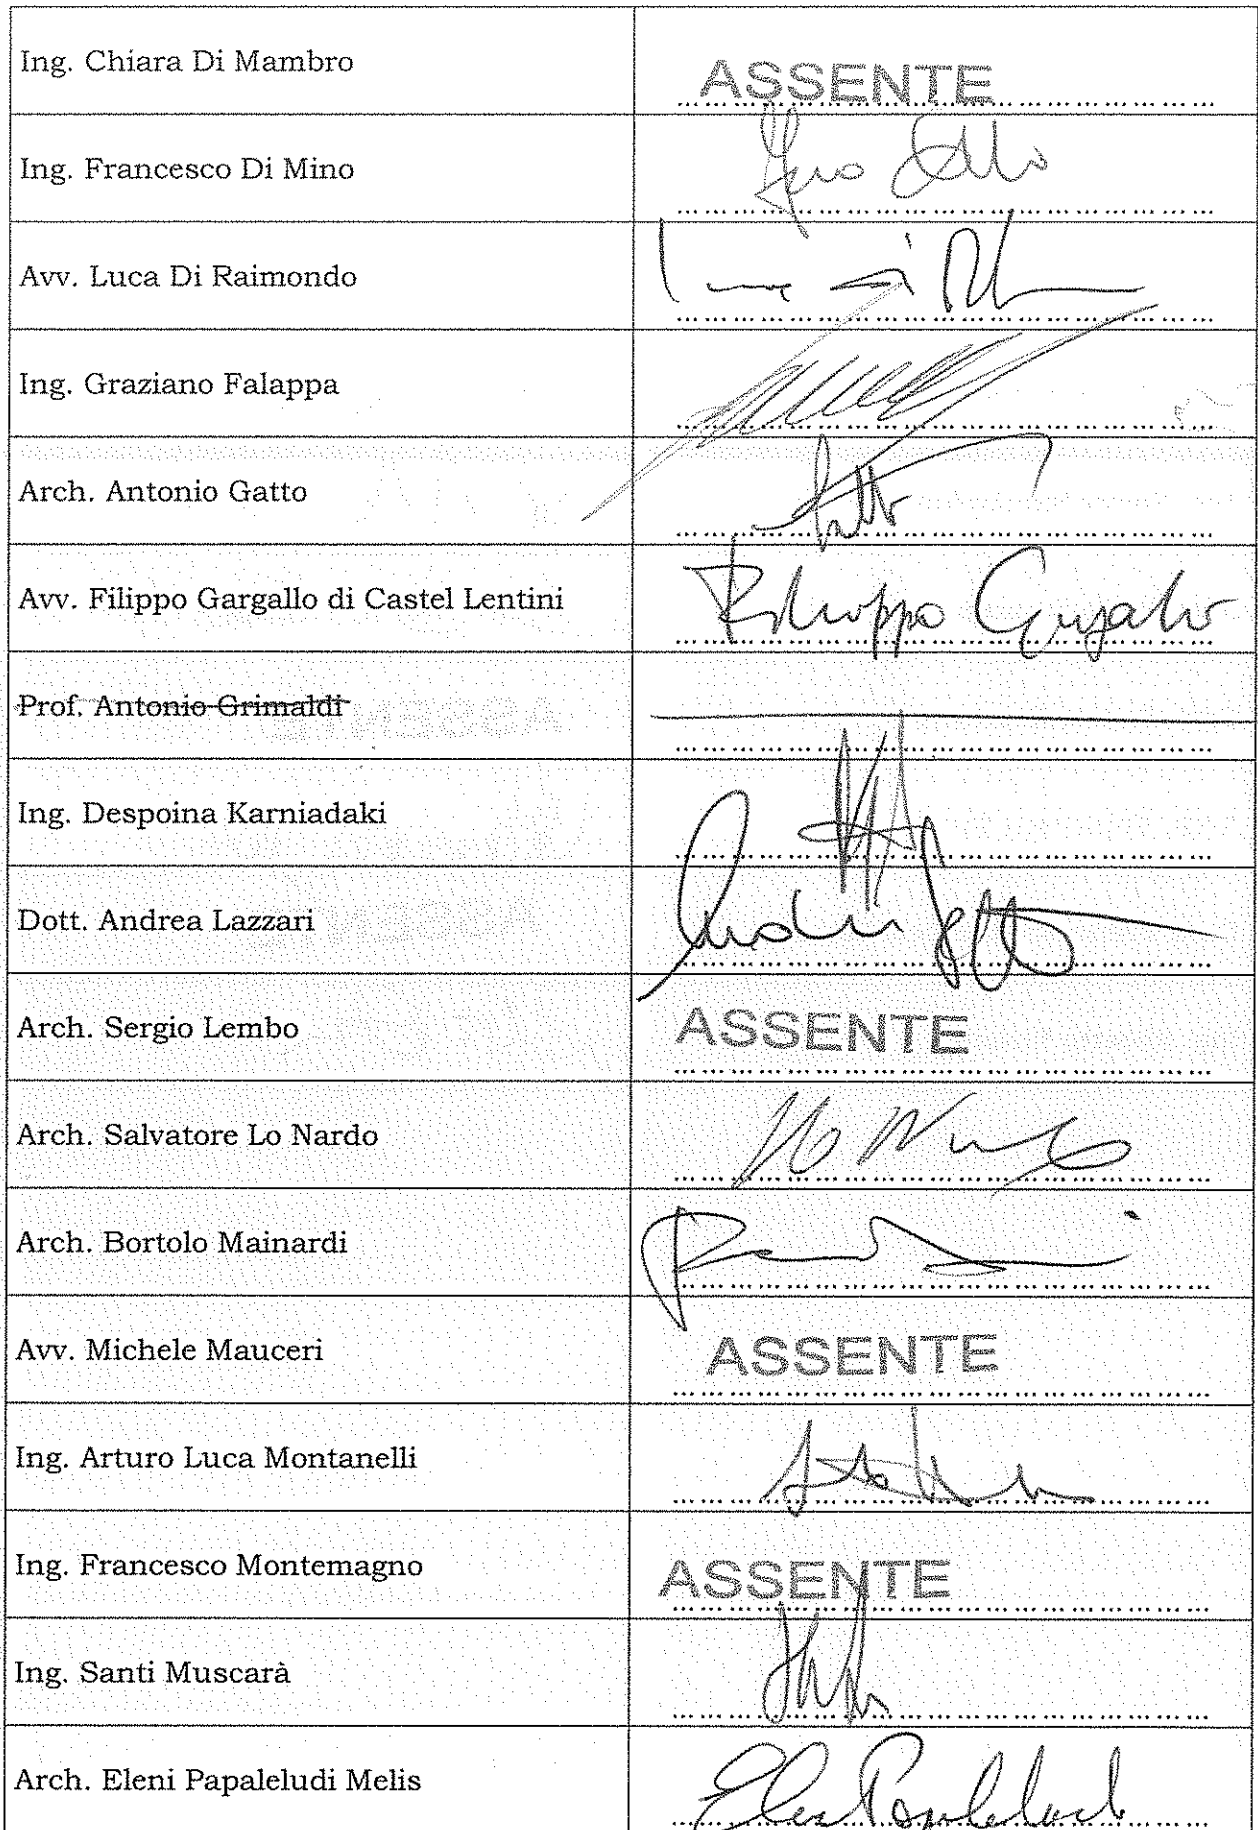 Ing. Chiara Di Mambro ASSENTE
Ing. Francesco Di Mino
Avv. Luca Di Raimondo
Ing. Graziano Falappa
Arch. Antonio Gatto
Avv. Filippo Gargallo di Castel Lentini
Prof. Antonio Grimaldi
Ing. Despoina Karniadaki
Dott. Andrea Lazzari
Arch. Sergio Lembo ASSENTE
Arch. Salvatore Lo Nardo
Arch. Bortolo Mainardi
Avv. Michele Mauceri ASSENTE
Ing. Arturo Luca Montanelli
Ing. Francesco Montemagno ASSENTE
Ing. Santi Muscarà
Arch. Eleni Papaleludi Melis